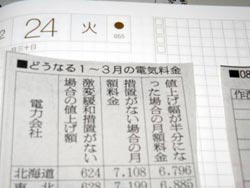 24 火
■どうなる1〜3月の電気料金
電力会社
激変緩和措置がない
場合の値上げ額
措置がない場合の月
額料金
値上げ幅が半分にな
った場合の月額料金
北海道 624 7,108 6,796
7,199 6,885
■08